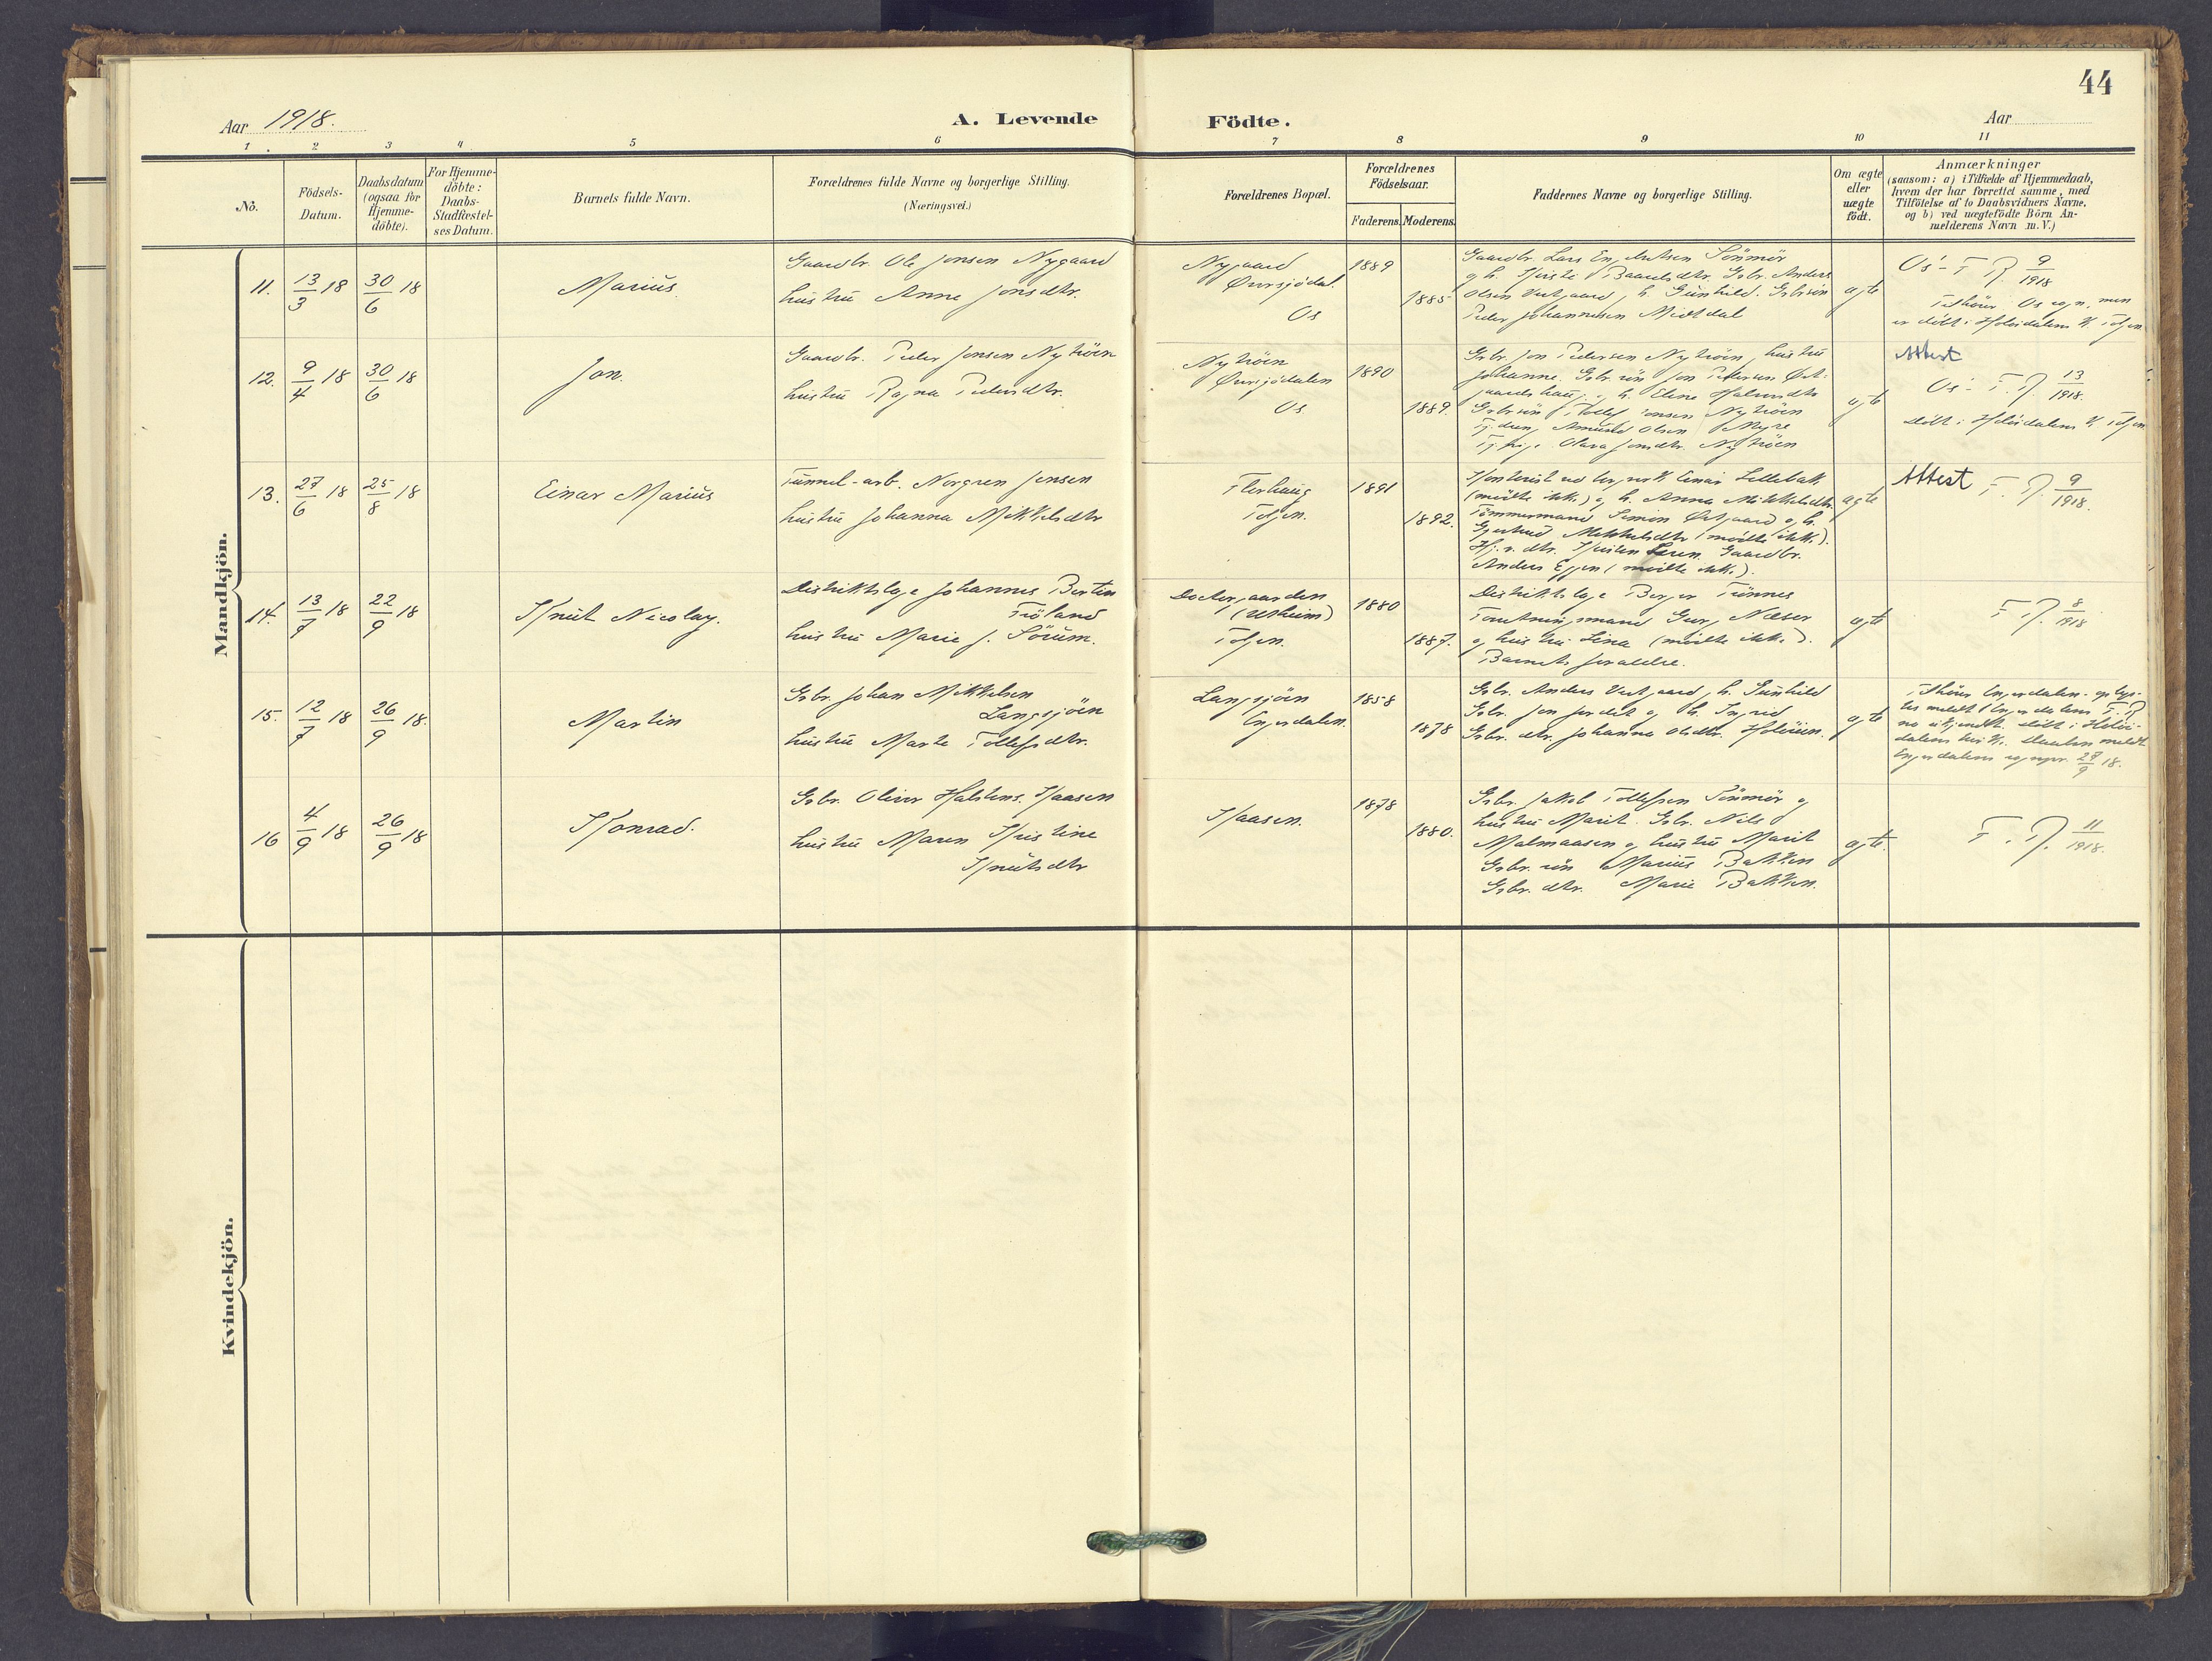 44
Aar 1918.
A. Levende Födte.
Aar
1 2 3 4 5 6 7 8 9 10 11
No.
Födsels-Datum.
Daabsdatum (ogsaa for Hjemme-döbte).
For Hjemme-döbte: Daabs-Stadfæstel-ses Datum.
Barnets fulde Navn.
Forældrenes fulde Navne og borgerlige Stilling.
(Næringsvei.)
Forældrenes Bopæl.
Forældrenes Födselsaar.
Faderens. Moderens.
Faddernes Navne og borgerlige Stilling.
Om ægte eller uægte födt.
Anmærkninger
(saasom: a) i Tilfælde af Hjemmedaab,
hvem der har forrettet samme, med
Tilföielse af to Daabsvidners Navne,
og b) ved uægtefödte Börn An-
melderens Navn m. V.)
Mandkjön.
11. 13/3 18 30/6 18
Marius
Gaardbr. Ole Jonsen Nygaard
hustru Anne Jonsdtr.
Nygaard
Øversjödal.
Os
1889
1885
Gaardbr. Lars Sönmör
Olsen Vestgaard, h. Gunhild. Gbrsön
Peder Johannesen Midtdal
ægte
Os - F. R. 9/1918
Tilhörer Os sogn, men
er döbt i Holöidalens K. Tolgen
12. 9/4 18 30/6 18
Jon.
Gaardbr. Peder Jonsen Nytröen
hustru Ragna Pedersdtr.
Nytröen
Øversjödalen
Os
1890
1889.
Gbr. Jon Pedersen Nytröen, hustru
Johanne. Gbr. sön Jon Petersen Øst-
gaardshaug, og h. Eline
Gbr sön Tollef Jonsen Nytröen
Tj. dreng Amund Olsen Myre
Tj. pige Olava Jonsdtr. Nytröen
ægte
Attest
Os - F. R. 13/1918.
döbt i Holöidalens K. Tolgen
13. 27/6 18 25/8 18
Einar Marius
Tunnel-arb. Norgren Jensen
hustru Johanna Mikkelsdtr
Flerhaug
Tolgen.
1891
1892.
Kontorist Einar Lillebak
(mödte ikke) og h. Anna Mikkelsdtr.
Tömmermand Simon Østgaard og h.
Gjertrud Mikkelsdtr (mödte ikke).
Hj. v. dtr. Kristen Gaardbr.
Anders Eggen (mödte ikke).
ægte
Attest F. R. 9/1918.
14. 13/7 18 22/9 18
Knut Nicolay.
Distriktslæge Johannes Bertin
Fröland
hustru Marie J. Sörum.
Doctergaarden
(Utheim)
Tolgen.
1880
1887.
Distriktslæge Berger Tünnes
Forretningsmand Nilsen
og hustru Lina (mödte ikke).
Barnets forældre.
ægte
F. R. 8/1918
15. 12/7 18 26/9 18.
Martin
Gbr. Johan Mikkelsen
Langsjöen
hustru Marte Tollefsdtr.
Langsjöen
Engerdalen.
1858
1878
Gbr. Anders Vestgaard, h. Gunhild
Gbr. Jon Jordet og h. Ingrid
Gbr. dtr. Johanna Olsdtr. Holöien.
ægte
Tilhörer Engerdalen - oplys-
tes meldt i Engerdalens F. R
no ukjendt. döbt i Holöi-
dalens kirke. Daaben meldt
Engerdalens sognepr. 27/9 18.
16 4/9 18 26/9 18
Konrad.
Gbr. Oliver Halstens. Kaasen
hustru Maren Kristine
Knutsdtr
Kaasen.
1878
1880.
Gbr. Jakob Tollefsen Sönmör og
hustru Marit. Gbr. Nils
Malmaasen og hustru Marit
Gbr. sön Marius Bakken
Gbr. dtr. Marie Bakken.
ægte.
F. R. 11/1918.
Kvindekjön.